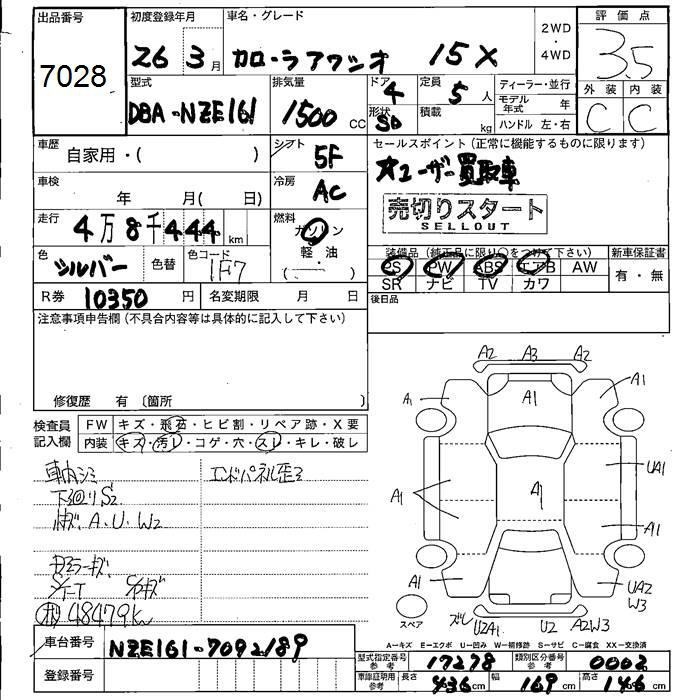 出品番号 初度登録年月 車名・グレード 2WD・4WD 評価点
7028 26 3月 カローラアクシオ 15X 3.5
型式 排気量 ドア 定員 ディーラー・並行 外装 内装
DBA-NZE161 1500cc 4 5人 モデル年式 年 C C
形状 SD 積載 kg ハンドル 左・右
車歴 自家用・( ) シフト 5F セールスポイント(正常に機能するものに限ります)
車検 年 月( 日) 冷房 AC ★ユーザー買取車
売切りスタート
SELLOUT
走行 4万8千444km 燃料 ガソリン
軽・油
( )
色 シルバー 色替 色コード 1F7
装備品(純正品に限り○をつけて下さい) 新車保証書
PS PW ABS エアB AW 有・無
SR ナビ TV カワ
R券 10350円 名変期限 月 日 後日品
注意事項申告欄(不具合内容等は具体的に記入して下さい)
修復歴 有〔箇所 〕
検査員記入欄 FW キズ・飛石・ヒビ割・リペア跡・X要
内装 キズ・汚レ・コゲ・穴・スレ・キレ・破レ
車内シミ エンドパネル歪ミ
下廻りS2
キズ.A.U.W2
48479k
A2 A3 A2
A1 A1 A1
UA1
A1 A1
A1
A1 UA2
W3
スペア ズレ U2A1 U2 A2W3
A=キズ E=エクボ U=凹み W=補修跡 S=サビ C=腐食 XX=交換済
車台番号 NZE161-7092189
登録番号
型式指定番号参考 17278 類別区分番号参考 0002
車庫証明用参考 長さ 436cm 幅 169cm 高さ 146cm